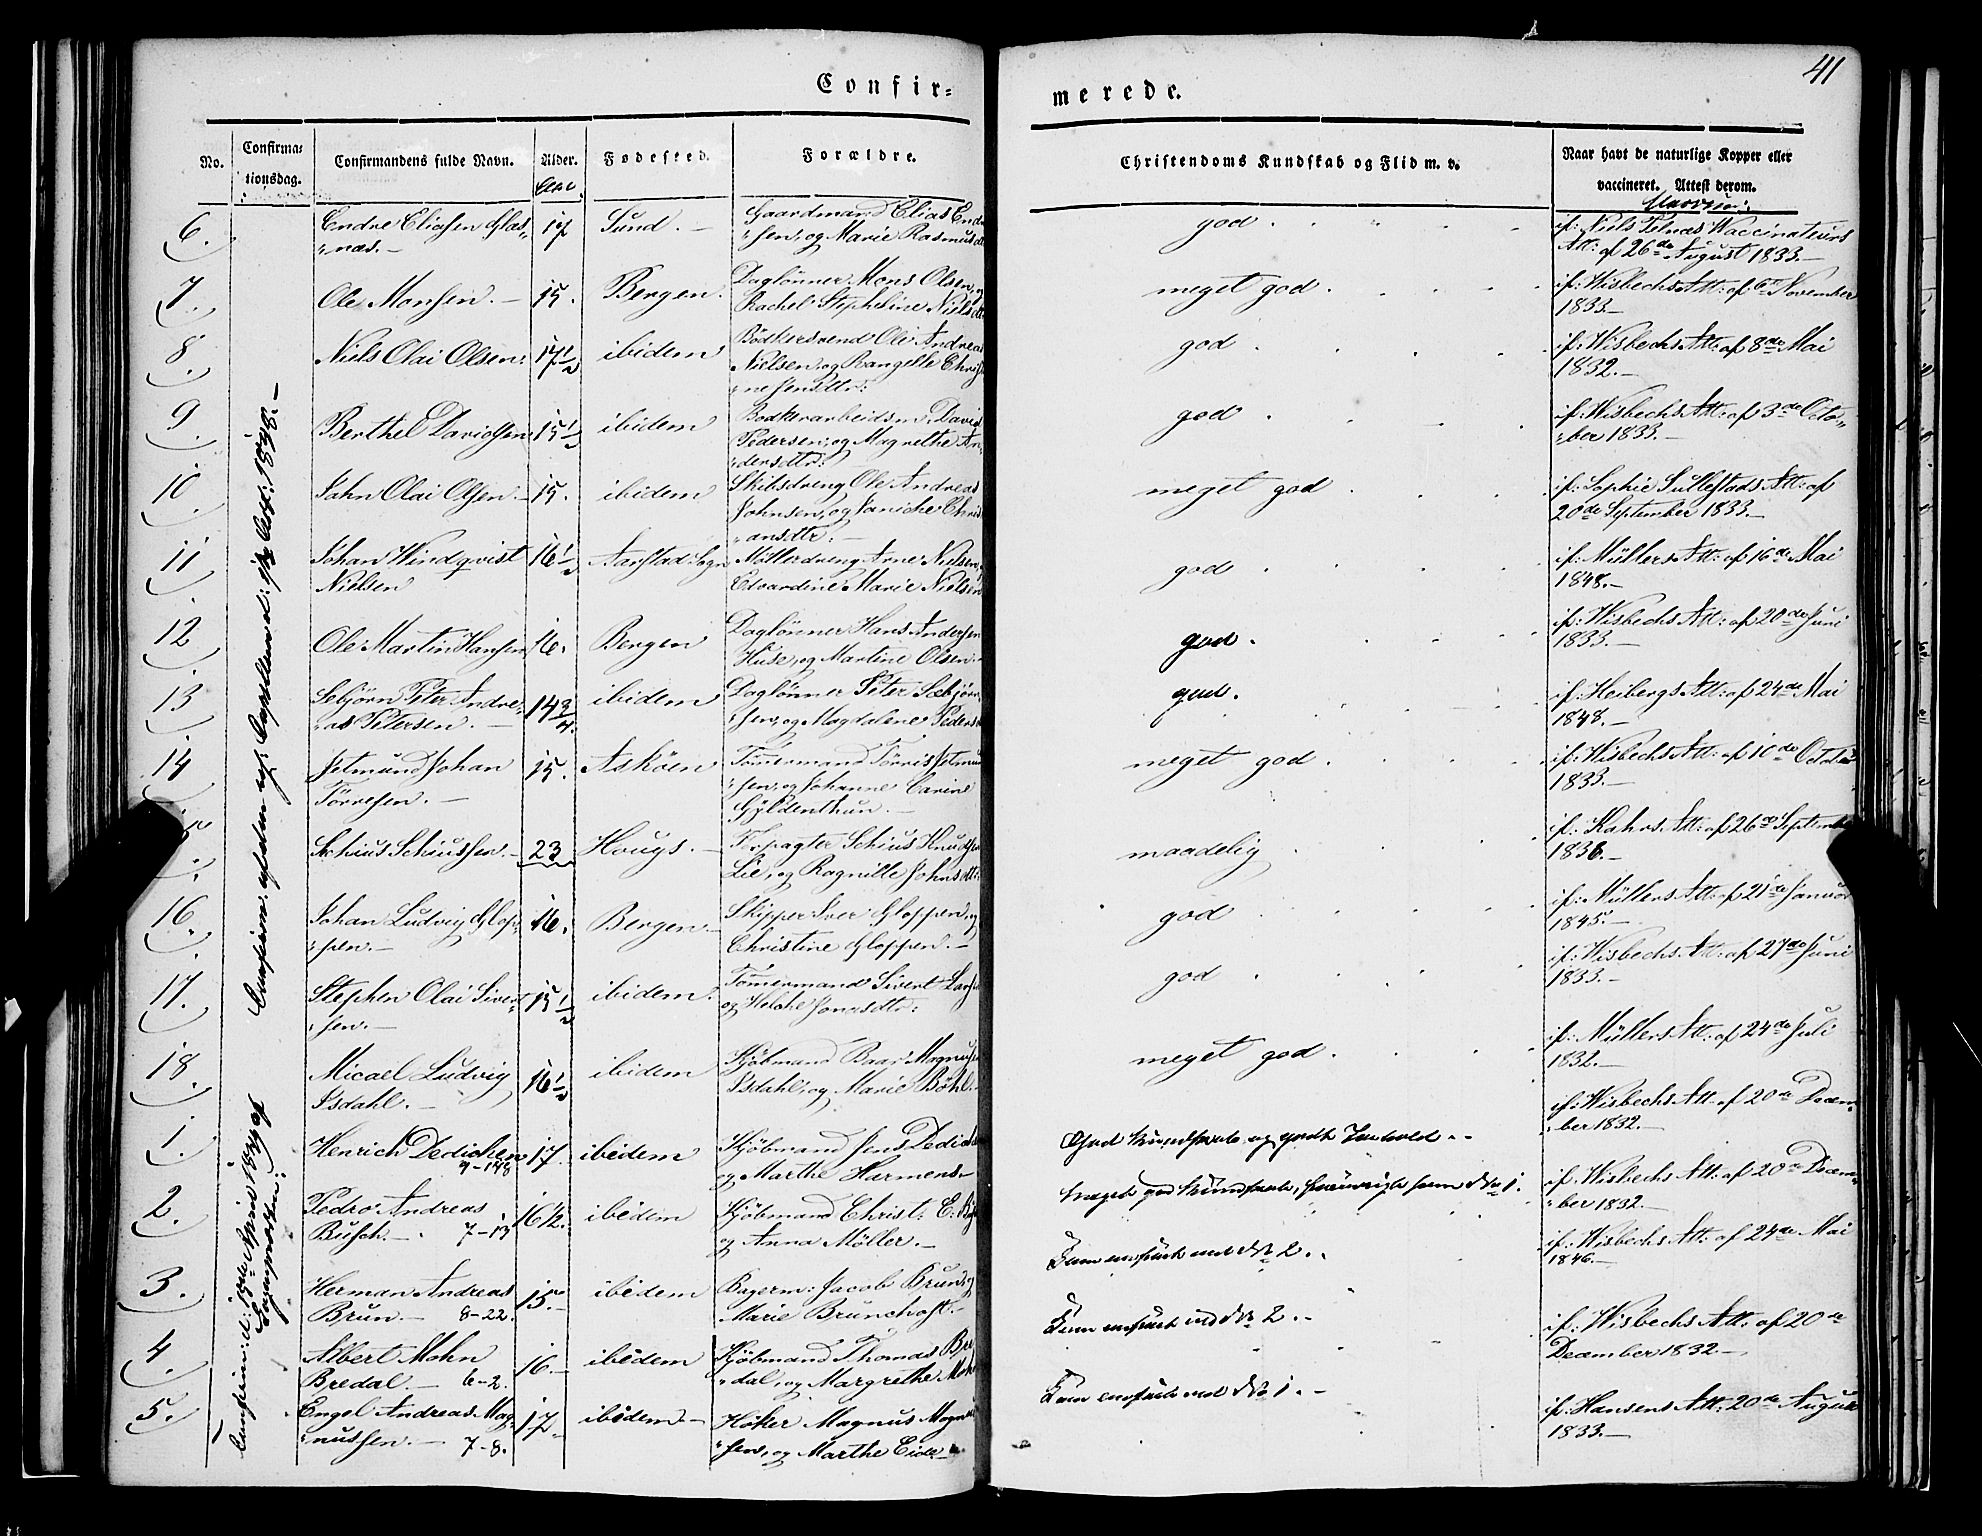 41
Confir-
merede.
No.
Confirma-
tionsdag.
Confirmandens fulde Navn.
Alder.
Aar.
Fødested.
Forældre.
Christendoms Kundskab og Flid m. v.
Naar havt de naturlige Kopper eller
vaccineret. Attest derom.
Confirm:
6.
Endre Eliassen Glæs-
næs.
17
Sund.
Gaardmand Elias Endre
sen, og Marie Rasmusdtr
god
if: Niels Vaccinateurs
Att: af 26de August 1833.
7.
Ole Monsen.
15.
Bergen.
Daglønner Mons Olsen, og
Rachel Stepheline Nielsdtr
meget god.
if: Wisbechs Att: af 6te November
1833.
8.
Niels Olai Olsen.
17½
ibidem
Bødkersvend Ole Andreas
Nielsen, og Rangelle Chris
nesensdtr:
god
if: Wisbechs Att: af 8de Mai
1832.
9.
Berthel Davidsen
15½
ibidem
Bodkerarbeidsm. David
Pedersen, og Magrethe An-
dersdtr:
god
if: Wisbechs Att: af 3de Octo-
ber 1833.
10.
John Olai Olsen.
15.
ibidem
Skibsdreng Ole Andreas
Johnsen, og Janiche Chris
ansdtr.
meget god
if: Sophie Sullestads Att: af
20de September 1833.
11
Johan Windqvist
Nielsen
16½
Aarstad Sogn
Møllerdreng Arne Nielsen, og
Edvardine Marie Nielsen
god
if: Müllers Att: af 16de Mai
1848.
12
Ole Martin Hansen
16.
Bergen
Daglønner Hans Andersen
Huse, og Martine Olsen.
god.
if: Wisbechs Att: af 20de Juni
1833.
13
Sebjörn Peter Andre-
as Petersen.
14¾.
ibidem
Daglønner Peter Sæbjørn
sen, og Magdalene Pedersd
god.
if: Heibergs Att: af 24de Mai
1848.
14
Jetmund Johan
Törresen.
15.
Askøen
Tømermand Törris Jetmund
sen, og Johanne Carine
Gyldenthun.
meget god
if: Wisbechs Att: af 10de October
1833.
15.
Schius Schiussen.
23
Hougs.
Forpagter Schius Knudsen
Lie, og Ragnille Johnsdtr.
maadelig
if: Kahrs Att: af 26de September
1836.
16.
Johan Ludvig Glop-
pen.
16.
Bergen
Skipper Iver Gloppen, og
Christine Gloppen.
god
if: Müllers Att: af 21de Januar
1845.
17.
Stephen Olai Sivert-
sen.
15½
ibidem.
Tømermand Sivert Larsen
og Helche Jonasdtr:
god
if: Wisbechs Att: af 27de Juni
1833.
18.
Micael Ludvig
Isdahl.
16½
ibidem
Kjöbmand Baar Magnus
Isdahl, og Marie Böhl.
meget god.
if: Müllers Att: af 24de Juli
1832.
1.
Henrich Dedichen
17
ibidem
Kjöbmand Jens Dedichen
og Marthe Harmens
God Kundskab og godt Forhold.
if: Wisbechs Att. af 20de Decem-
ber 1832.
2.
Pedro Andreas
Busch.
7-13
16½.
ibidem
Kjöbmand Christ: E: B
og Anna Möller.
Meget god Kundskab, forøvrigt som No 1.
if: Wisbechs Att: af 20de Decem-
ber 1832.
3.
Herman Andreas
Brun.
8-22.
15.
ibidem
Bagerm: Jacob Brun, og
Marie Brunchost.
Som anført ved No 2.
if: Wisbechs Att: af 24de Mai
1846.
4.
Albert Mohn
Bredal.
6-2.
16
ibidem
Kjöbmand Thomas Bre
dal, og Margrethe Mohn
Som anført ved No 2.
if: Wisbechs Att: af 20de
December 1832.
5.
Engel Andreas Mag-
nussen.
7-8.
17
ibidem
Høker Magnus Magnus
sen, og Marthe Eide
Som anført ved No 1.
if: Hansens Att: 20de August
1833.